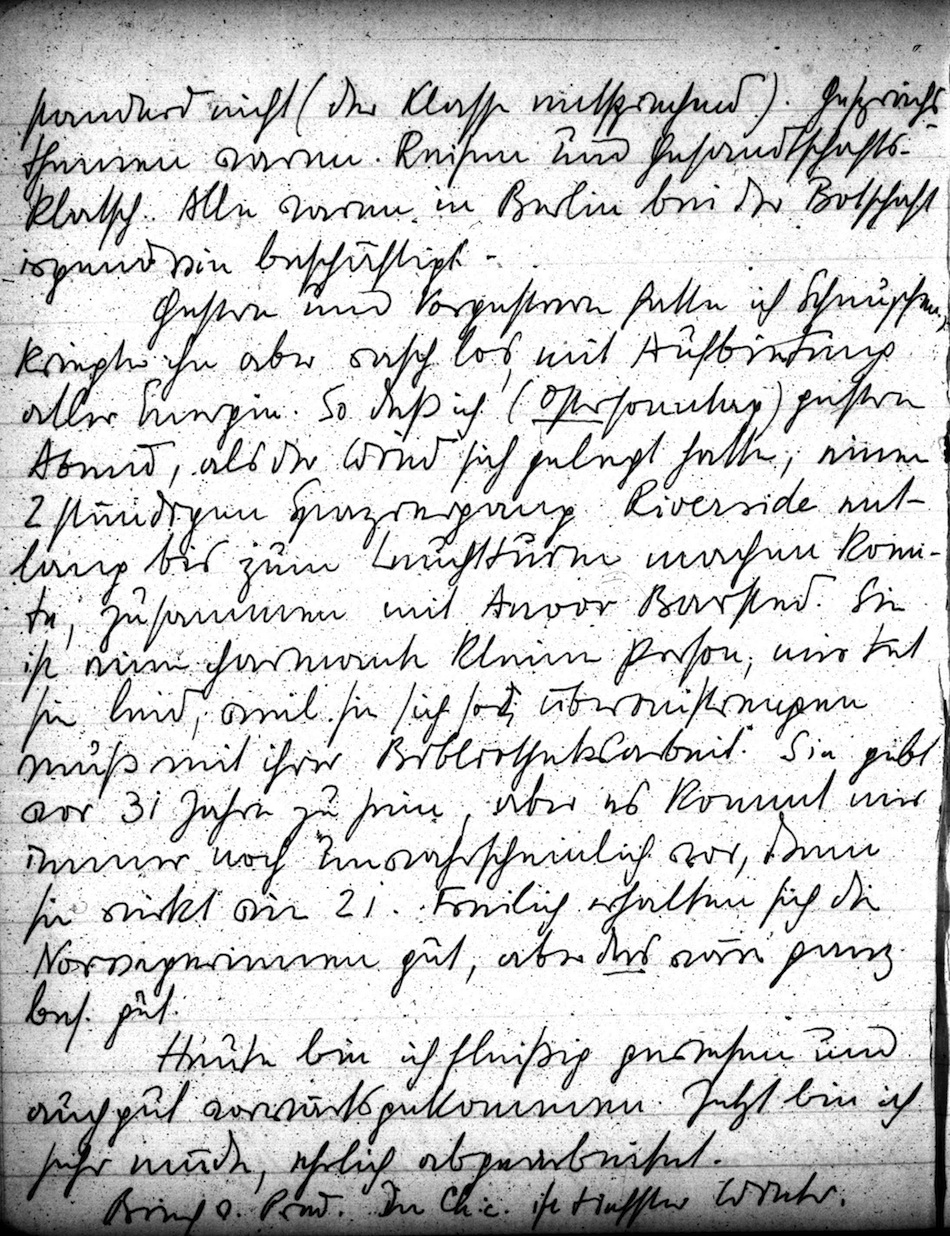 standard nicht (der Klasse entsprechend). Gesprächs
themen waren Reisen und Gesandtschafts-
klatsch. Alle waren in Berlin bei der Botschaft
irgendwie beschäftigt.
Gestern und Vorgestern hatte ich Schnupfen,
kriegte ihn aber rasch los, mit Aufbietung
aller Energie. So daß ich (Ostersonntag) gestern
Abend, als der Wind sich gelegt hatte, einen
2 stündigen Spaziergang Riverside ent-
lang bis zum Leuchtturm machen konn-
te, zusammen mit Barsted. Sie
ist eine charmante kleine Person, mir tut
sie leid, weil sie sich so überanstrengen
muß mit ihrer Bibliotheksarbeit. Sie gibt
vor 31 Jahre zu sein, aber es kommt mir
immer noch unwahrscheinlich vor, denn
sie wirkt wie 21. Freilich erhalten sich die
Norwegerinnen gut, aber das wäre ganz
bes. gut.
Heute bin ich fleißig gewesen und
auch gut vorwärtsgekommen. Jetzt bin ich
sehr müde, ehrlich abgearbeitet.
Brief v. In Ch.c. ist tiefster Winter.